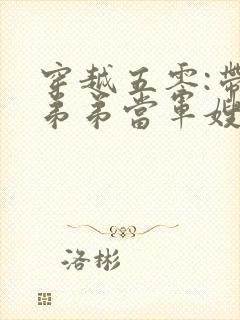 穿越五零:帶
弟弟當軍嫂
洛彬